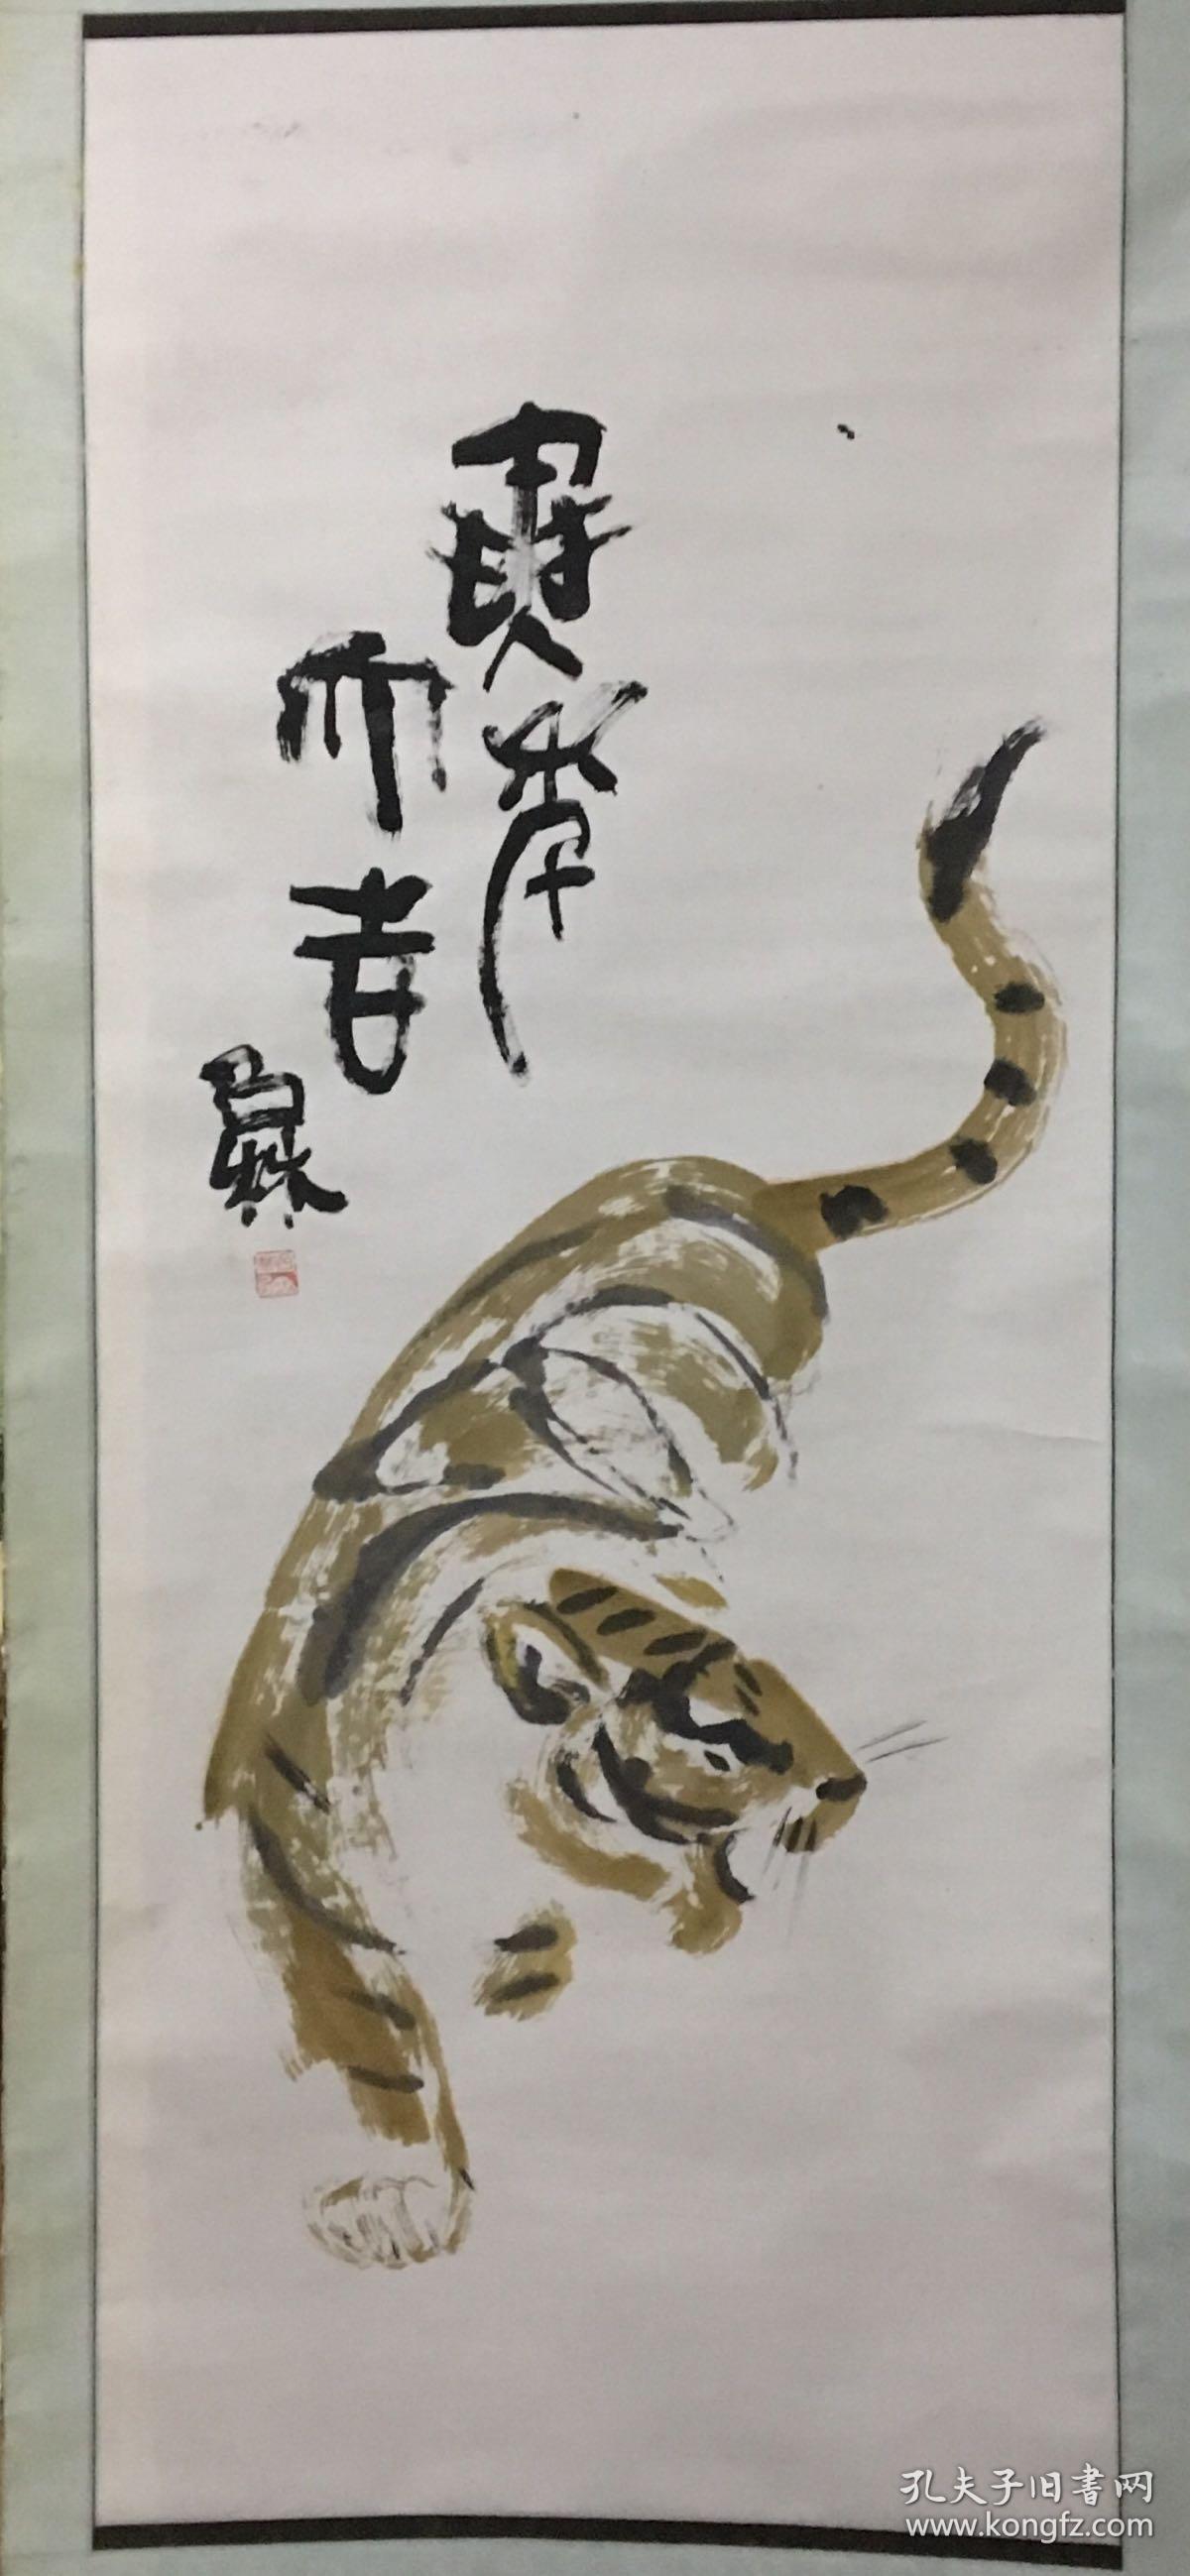 寅年
大吉
孔夫子旧書网
www.kongfz.com